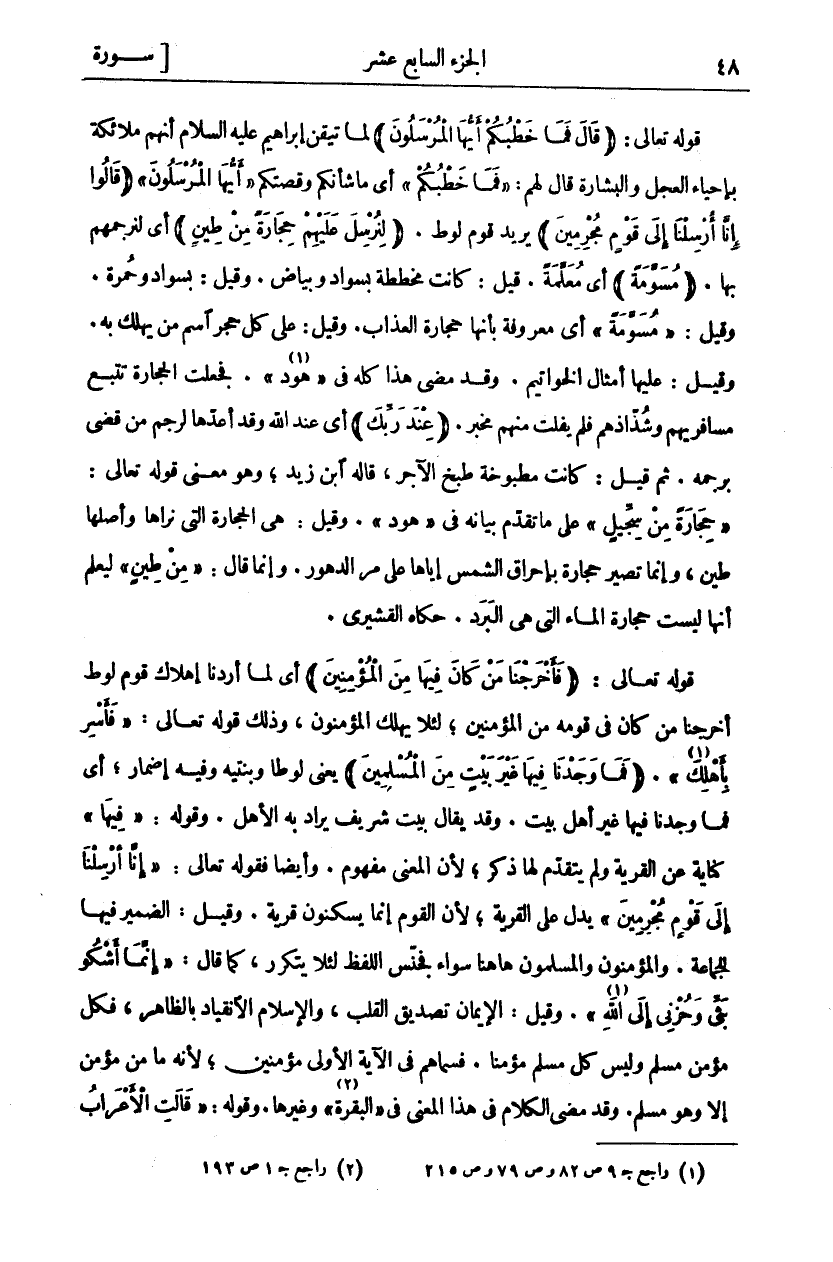 ٤٨ الجزء السابع عشر [ ســورة
قوله تعالى : ﴿ قَالَ فَمَا خَطْبُكُمْ أَيُّهَا الْمُرْسَلُونَ ﴾ لما تيقن إبراهيم عليه السلام أنهم ملائكة
بإحياء العجل والبشارة قال لهم : «فَمَا خَطْبُكُمْ » أى ماشأنكم وقصتكم « أَيُّهَا الْمُرْسَلُونَ» ﴿ قَالُوا
إِنَّا أُرْسِلْنَا إِلَى قَوْمٍ مُجْرِمِينَ ﴾ يريد قوم لوط . ﴿ لِنُرْسِلَ عَلَيْهِمْ حِجَارَةً مِنْ طِينٍ ﴾ أى لنرجمهم
بها . ﴿ مُسَوَّمَةً ﴾ أى مُعَلَّمَةً . قيل : كانت مخططة بسواد وبياض . وقيل : بسواد وحُمرة .
وقيل : « مُسَوَّمَةً » أى معروفة بأنها حجارة العذاب. وقيل : على كل حجر آسم من يهلك به .
وقيـل : عليها أمثال الخواتيم . وقـد مضى هذا كله فى « هود (١) » . فجعلت الحجارة تتبـع
مسافريهم وشُذّاذهم فلم يفلت منهم مخبر . ﴿ عِنْدَ رَبِّكَ ﴾ أى عند الله وقد أعدّها لرجم من قضى
برجمه . ثم قيـل : كانت مطبوخة طبخ الآجر ، قاله آبن زيد ؛ وهو معـنى قوله تعالى :
« حِجَارَةً مِنْ سِجِّيلٍ » على ماتقدّم بيانه فى « هود » . وقيل : هى الحجارة التى نراها وأصلها
طين ، وإنما تصير حجارة بإحراق الشمس إياها على مر الدهور . وإنما قال : « مِنْ طِينٍ » ليعلم
أنها ليست حجارة المـاء التى هى البَرَد . حكاه القشيرى .
قوله تعـالى : ﴿ فَأَخْرَجْنَا مَنْ كَانَ فِيهَا مِنَ الْمُؤْمِنِينَ ﴾ أى لمـا أردنا إهلاك قوم لوط
أخرجنا من كان فى قومه من المؤمنين ؛ لئلا يهلك المؤمنون ، وذلك قوله تعـالى : « فَأَسْرِ
بِأَهْلِكَ (١) » . ﴿ فَمَـا وَجَدْنَا فِيهَا غَيْرَ بَيْتٍ مِنَ الْمُسْلِمِينَ ﴾ يعنى لوطا وبنتيه وفيـه إضمار ؛ أى
فمـا وجدنا فيها غير أهل بيت . وقد يقال بيت شريف يراد به الأهل . وقوله : « فِيهَا »
كناية عن القرية ولم يتقدّم لها ذكر ؛ لأن المعنى مفهوم . وأيضا فقوله تعالى : « إِنَّا أُرْسِلْنَا
إِلَى قَوْمٍ مُجْرِمِينَ » يدل على القرية ؛ لأن القوم إنما يسكنون قرية . وقيـل : الضمير فيهـا
للجماعة . والمؤمنون والمسلمون هاهنا سواء فجنّس اللفظ لئلا يتكرر ، كما قال : « إِنَّمَا أَشْكُو
بَثِّى وَحُزْنِى إِلَى اللَّهِ (١) » . وقيل : الإيمان تصديق القلب ، والإسلام الآنقياد بالظاهر ، فكل
مؤمن مسلم وليس كل مسلم مؤمنا . فسماهم فى الآية الأولى مؤمنين ؛ لأنه ما من مؤمن
إلا وهو مسلم. وقد مضى الكلام فى هذا المعنى فى «البقرة (٢)» وغيرها. وقوله : « قَالَتِ الْأَعْرَابُ
(١) راجع جـ ٩ ص ٨٢ و ص ٧٩ و ص ٢١٥ (٢) راجع جـ ١ ص ١٩٣